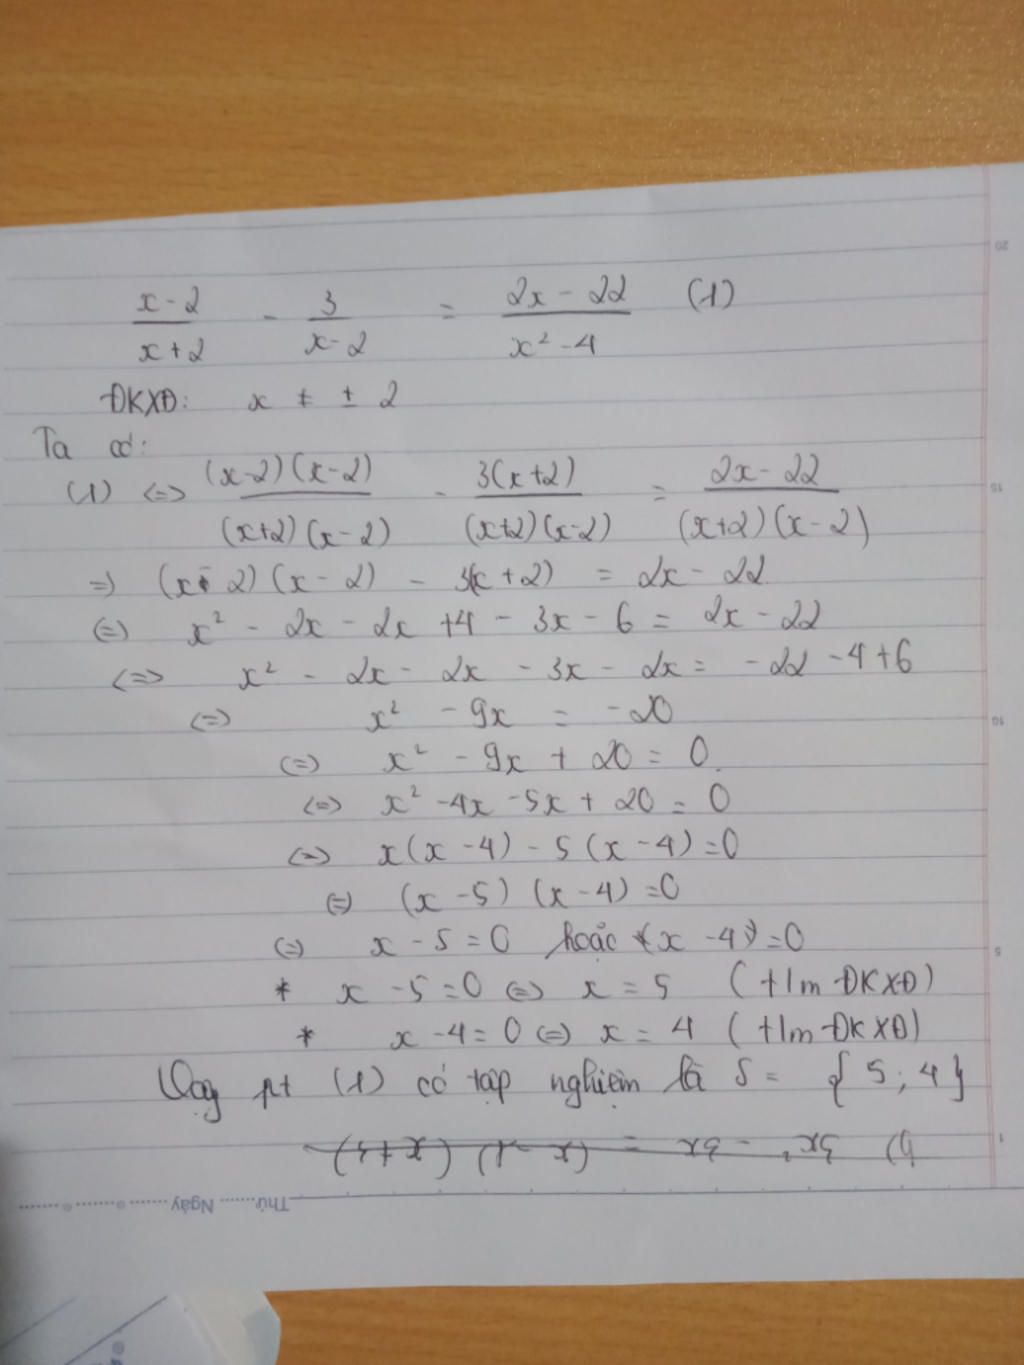 x-2 / x+2 - 3 / x-2 = 2x - 22 / x² - 4 (1)
ĐKXĐ: x ≠ ± 2
Ta có:
(1) <=> (x-2)(x-2) / (x+2)(x-2) - 3(x+2) / (x+2)(x-2) = 2x - 22 / (x+2)(x-2)
=> (x-2)(x-2) - 3(x+2) = 2x - 22
<=> x² - 2x - 2x + 4 - 3x - 6 = 2x - 22
<=> x² - 2x - 2x - 3x - 2x = -22 - 4 + 6
<=> x² - 9x = -20
<=> x² - 9x + 20 = 0
<=> x² - 4x - 5x + 20 = 0
<=> x(x-4) - 5(x-4) = 0
<=> (x-5)(x-4) = 0
<=> x - 5 = 0 hoặc (x - 4) = 0
* x - 5 = 0 <=> x = 5 (t/m ĐKXĐ)
* x - 4 = 0 <=> x = 4 (t/m ĐKXĐ)
Vậy pt (1) có tập nghiệm là S = {5; 4}
Thứ........ Ngày
20
15
10
5
1